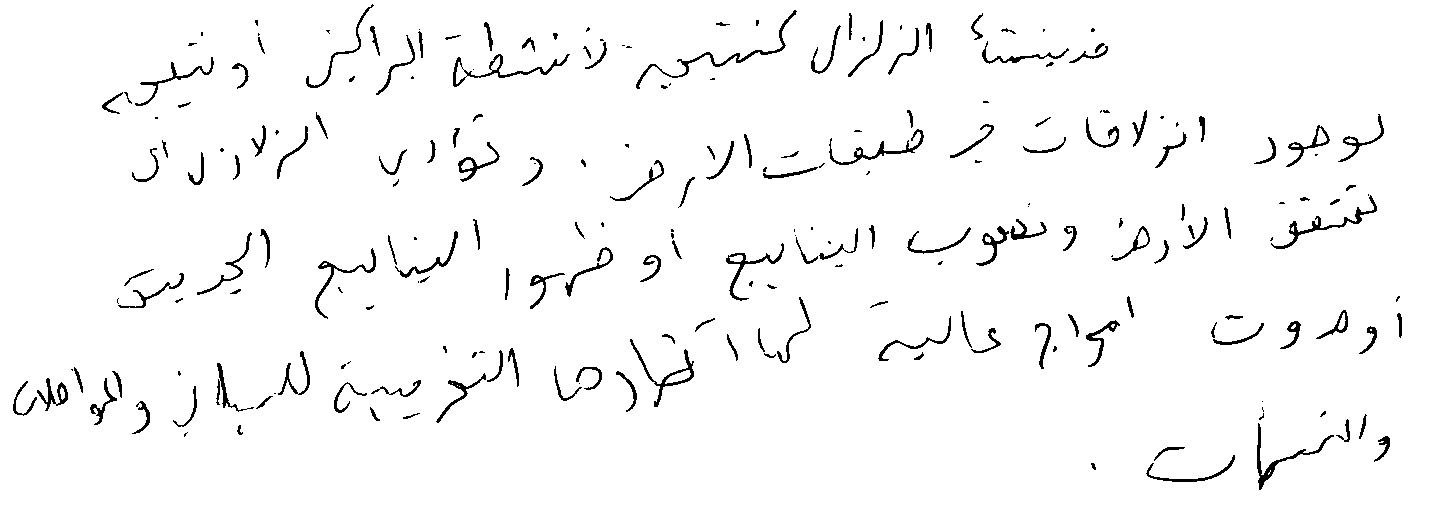 قد ينشأ الزلزال كنتيجة لأنشطة البراكين أو نتيجة
لوجود انزلاقات في طبقات الارض . وتؤدي الزلازل الى
تشقق الأرض ونضوب الينابيع أو ظهوا الينابيع الجديدة
أو حدوث امواج عالية لها آثارها التخريبية للمباني والمواصلات
والمنشآت .